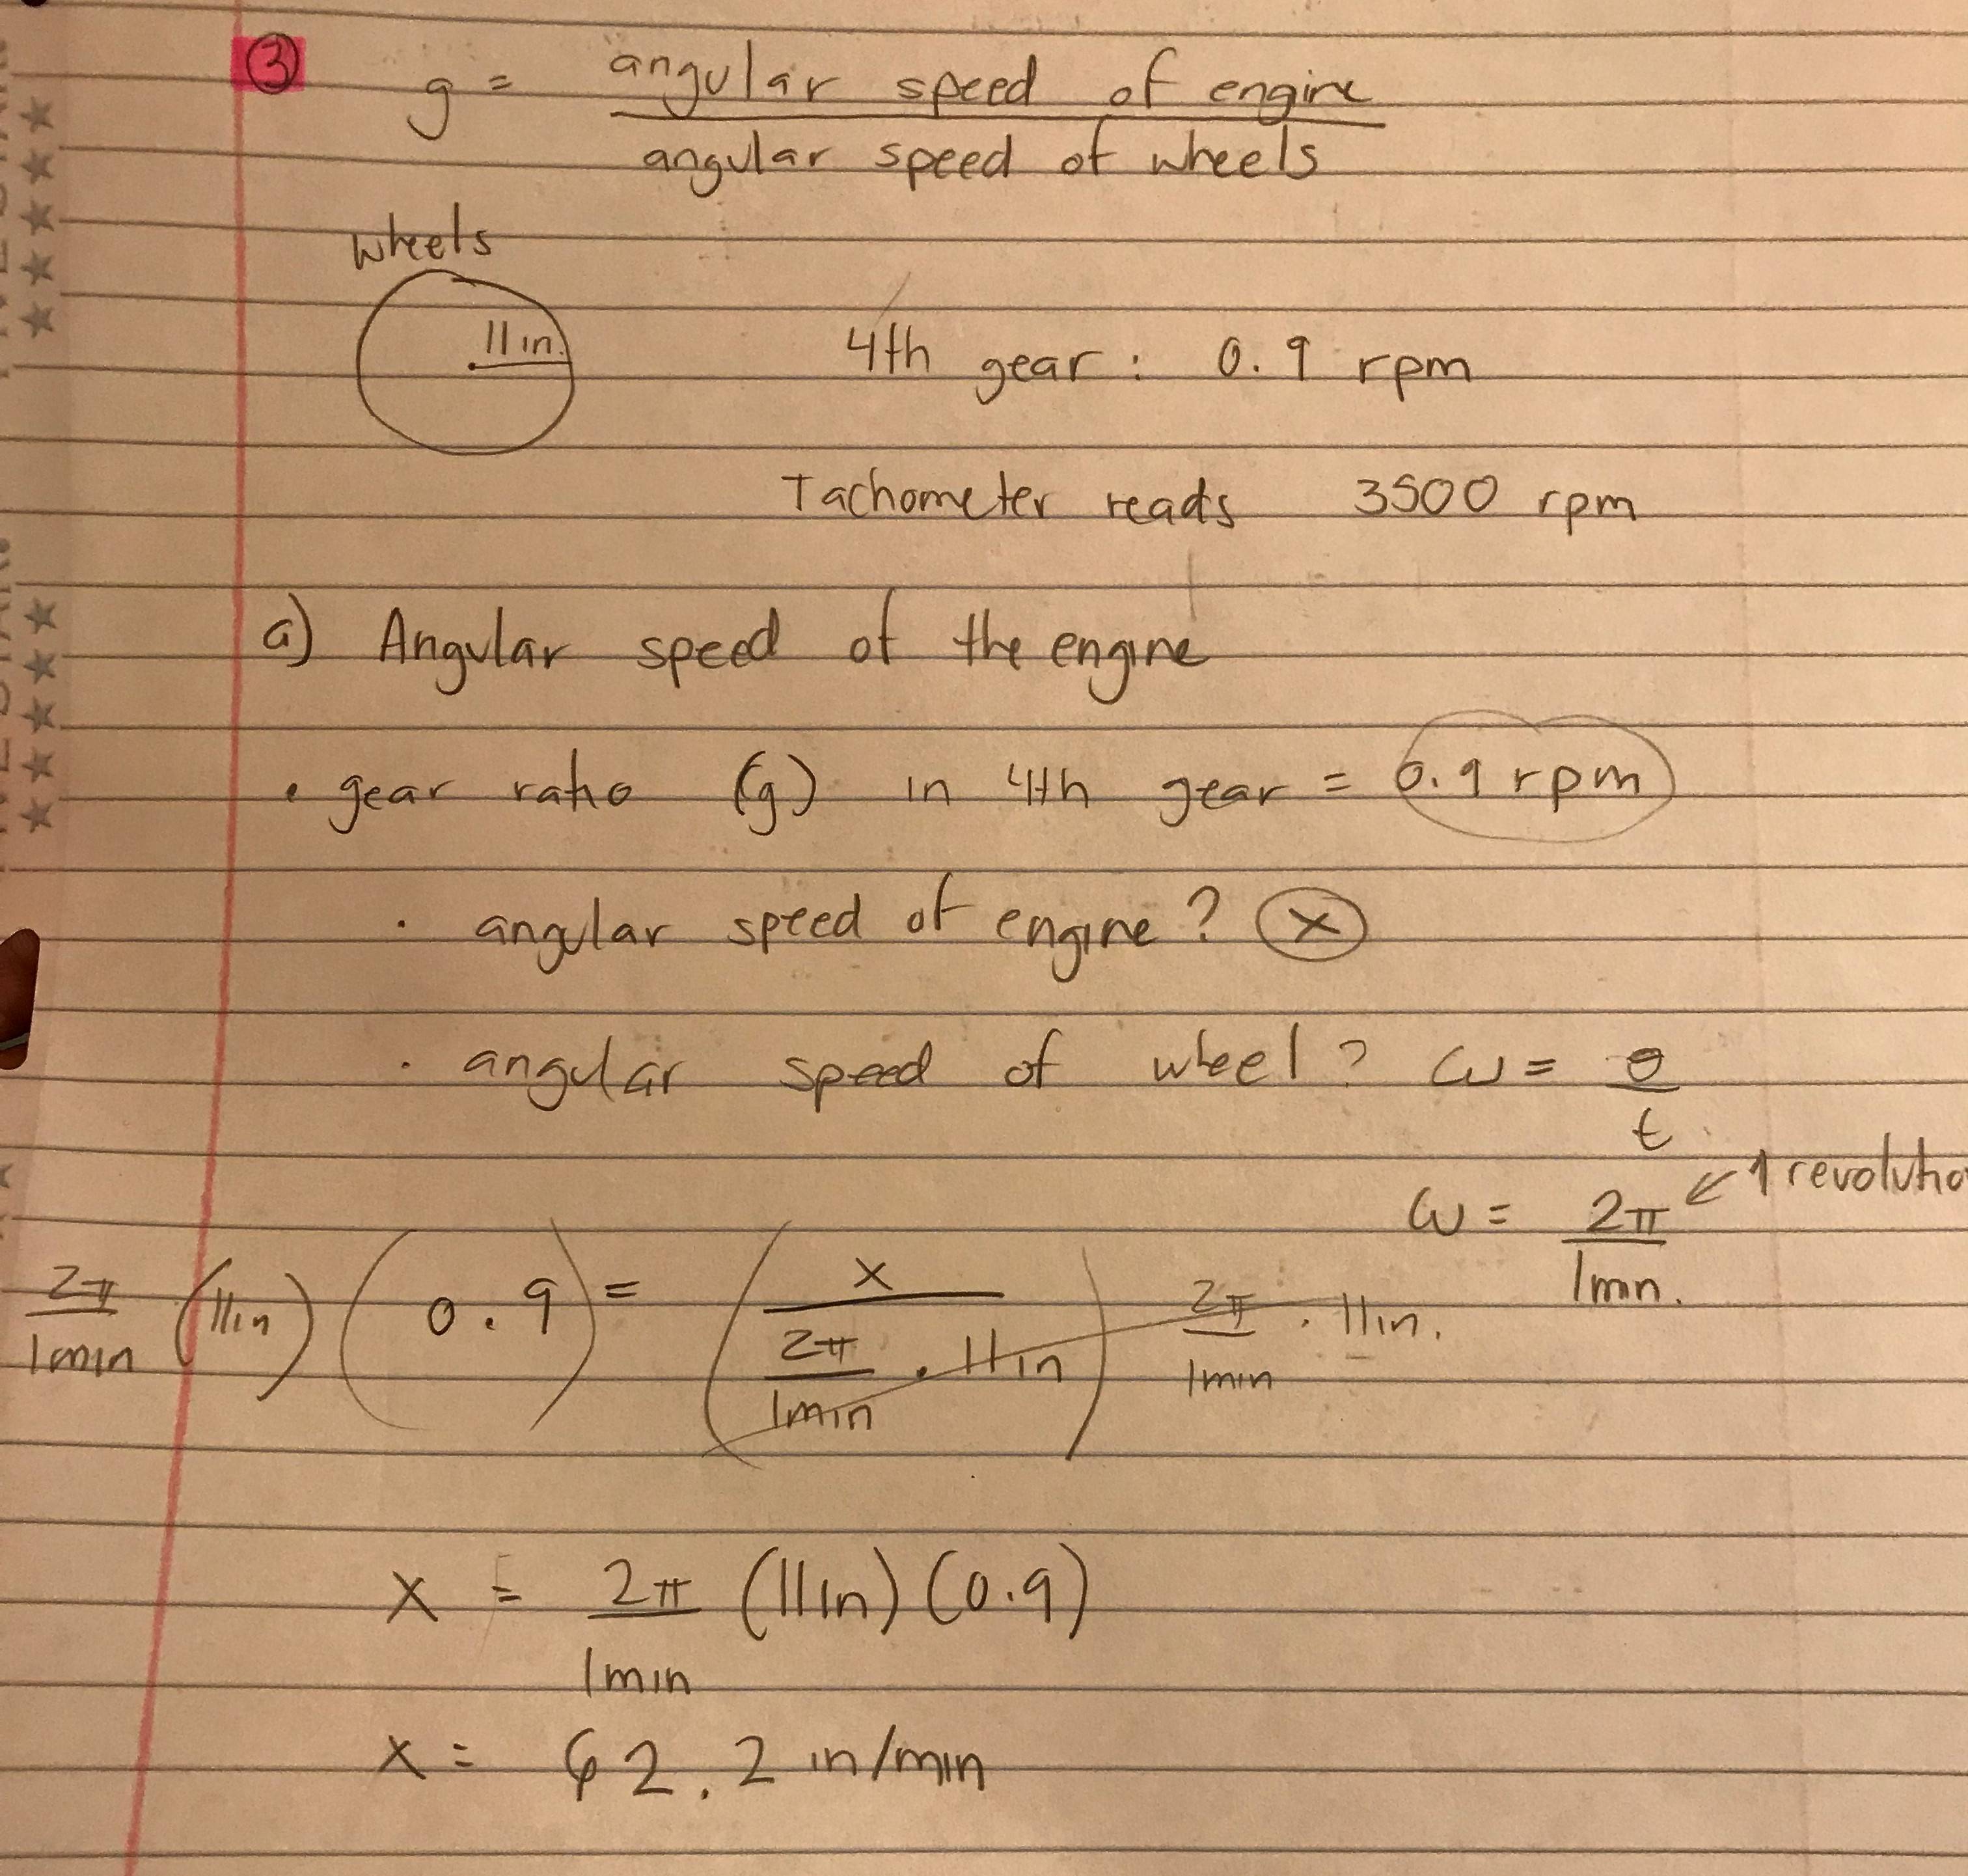 ③ g = angular speed of engine
angular speed of wheels
wheels
11 in.
4th gear : 0.9 rpm
Tachometer reads 3500 rpm
a) Angular speed of the engine
• gear ratio (g) in 4th gear = 0.9 rpm
· angular speed of engine? x
· angular speed of wheel? ω = θ/t
ω = 2π/1min. ← 1 revolutio
2π/1min (11in) (0.9) = (x / (2π/1min · 11in)) 2π/1min · 11in.
x = 2π/1min (11in) (0.9)
x = 62.2 in/min